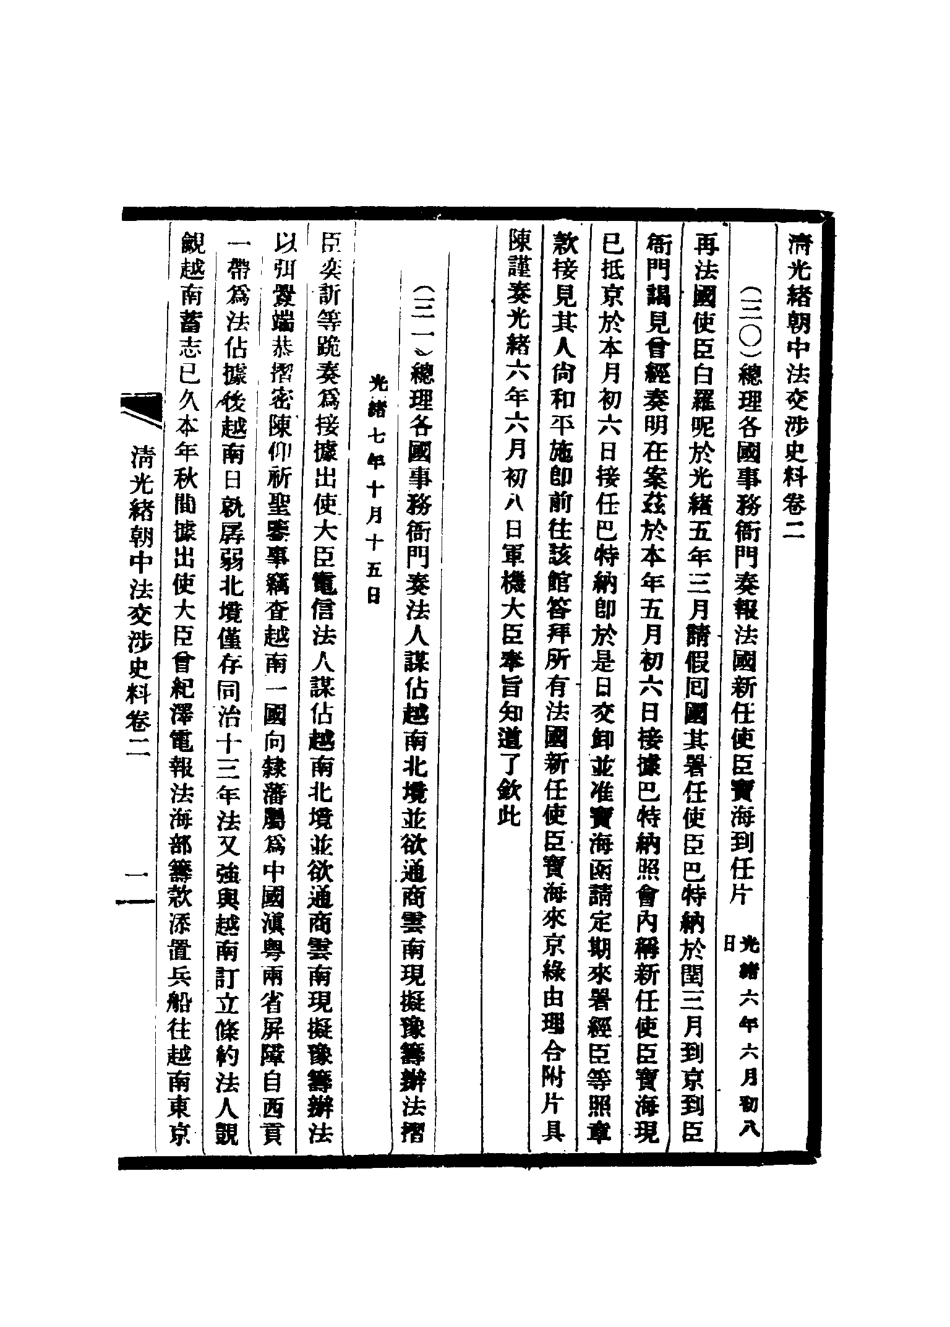 清光緒朝中法交涉史料卷二
（三〇）總理各國事務衙門奏報法國新任使臣寶海到任片 光緒六年六月初八日
再法國使臣白羅呢於光緒五年三月請假囘國其署任使臣巴特納於閏三月到京到臣
衙門謁見曾經奏明在案茲於本年五月初六日接據巴特納照會內稱新任使臣寶海現
已抵京於本月初六日接任巴特納卽於是日交卸並准寶海函請定期來署經臣等照章
欵接見其人尙和平施卽前往該館答拜所有法國新任使臣寶海來京緣由理合附片具
陳謹奏光緒六年六月初八日軍機大臣奉旨知道了欽此
（三一）總理各國事務衙門奏法人謀佔越南北境並欲通商雲南現擬豫籌辦法摺
光緒七年十月十五日
臣奕訢等跪奏爲接據出使大臣電信法人謀佔越南北境並欲通商雲南現擬豫籌辦法
以弭釁端恭摺密陳仰祈聖鑒事竊查越南一國向隸藩屬爲中國滇粤兩省屏障自西貢
一帶爲法佔據後越南日就孱弱北境僅存同治十三年法又強與越南訂立條約法人覬
覦越南蓄志已久本年秋間據出使大臣曾紀澤電報法海部籌欵添置兵船往越南東京
清光緒朝中法交涉史料卷二 一